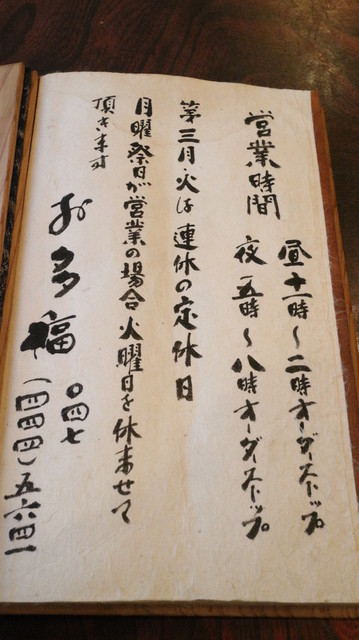 営業時間
昼 十一時〜二時オーダーストップ
夜 五時〜八時オーダーストップ
第三月・火は連休の定休日
月曜祭日が営業の場合火曜日を休ませて
頂きます
お多福
〇四七
(四四四)五六四一